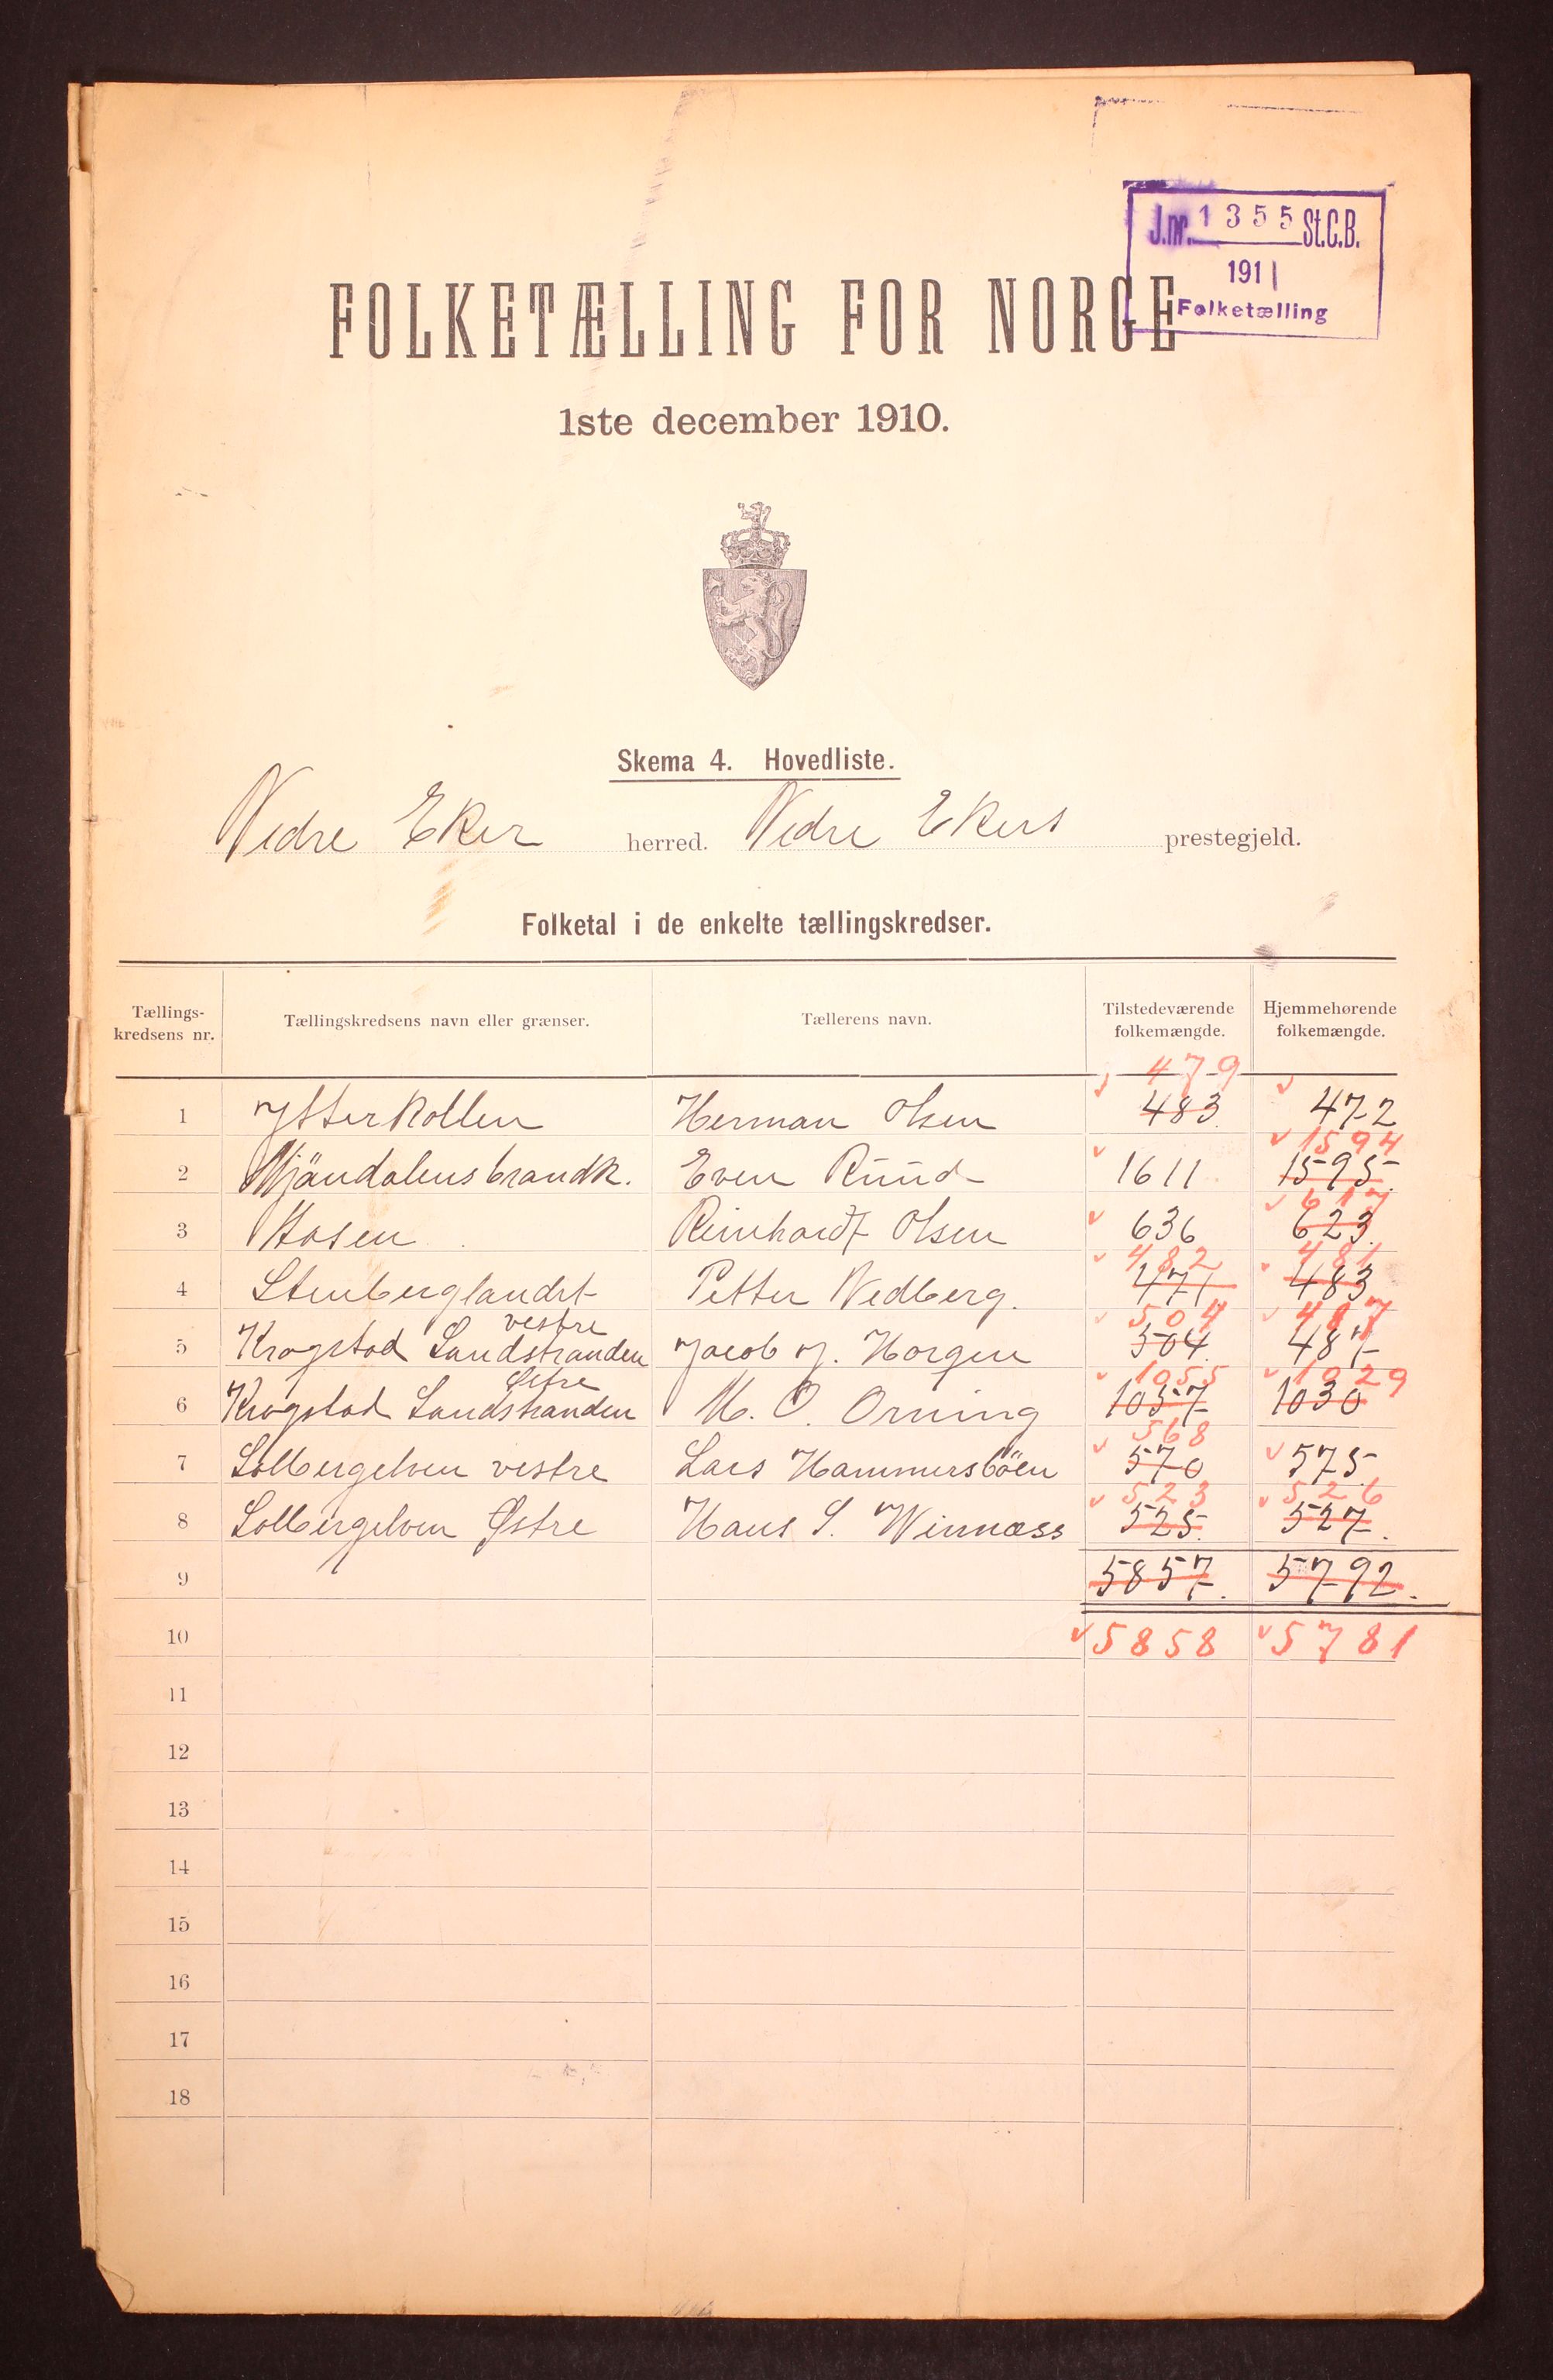 J.nr. 1355 St.C.B.
1911
Folketælling
FOLKETÆLLING FOR NORGE
1ste december 1910.
Skema 4. Hovedliste.
Nedre Eker herred. Nedre Ekers prestegjeld.
Folketal i de enkelte tællingskredser.
Tællings-kredsens nr. Tællingskredsens navn eller grænser. Tællerens navn. Tilstedeværende folkemængde. Hjemmehørende folkemængde.
479
1 Ytterkollen Herman Olsen 483. 472
1594
2 Mjöndalens brandk. Even Ruud 1611 1595.
617
3 Aasen Reinhardt Olsen 636 623.
482 481
4 Stenberglandet Petter Nedberg. 471 483
vestre 504
5 Krogstad Landstranden Jacob J. Horgen 504. 487
Østre 1055 1029
6 Krogstad Landstranden M. O. Orning 1057 1030
568
7 Solbergelven vestre Lars Hammersböen 570 575.
523 526
8 Solbergelven Østre Hans S. Winnæss 525. 527.
9 5857. 5792.
10 5858 5781
11
12
13
14
15
16
17
18